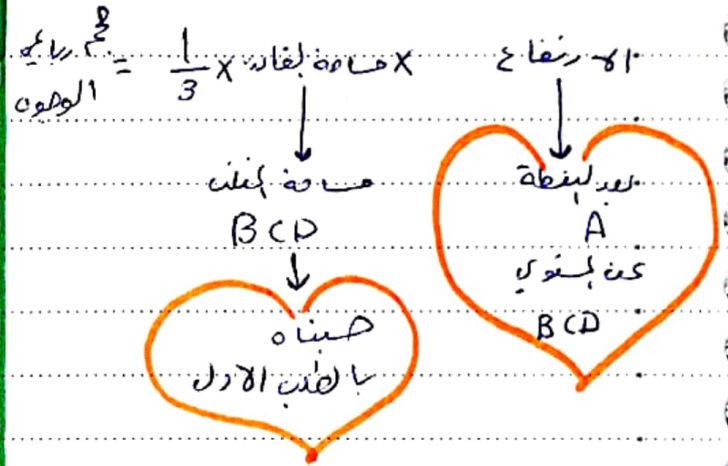 حجم رباعي الوجوه = 1/3 × مساحة القاعدة × الارتفاع
مساحة المثلث
BCD
حسبناه
بالطلب الاول
بعد النقطة
A
عن المستوي
BCD